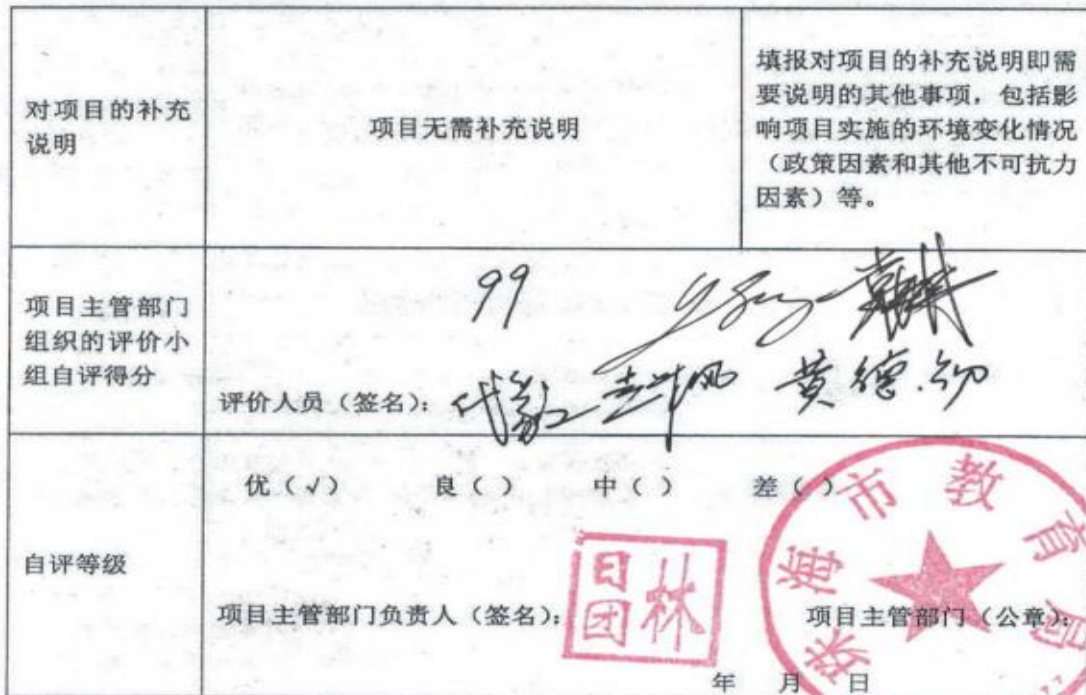 对项目的补充
说明
项目无需补充说明
填报对项目的补充说明即需
要说明的其他事项，包括影
响项目实施的环境变化情况
（政策因素和其他不可抗力
因素）等。
项目主管部门
组织的评价小
组自评得分
99
评价人员（签名）：
黄德
自评等级
优（√） 良（ ） 中（ ） 差（ ）
项目主管部门负责人（签名）：
林日团
项目主管部门（公章）：
珠海市教育局
年 月 日